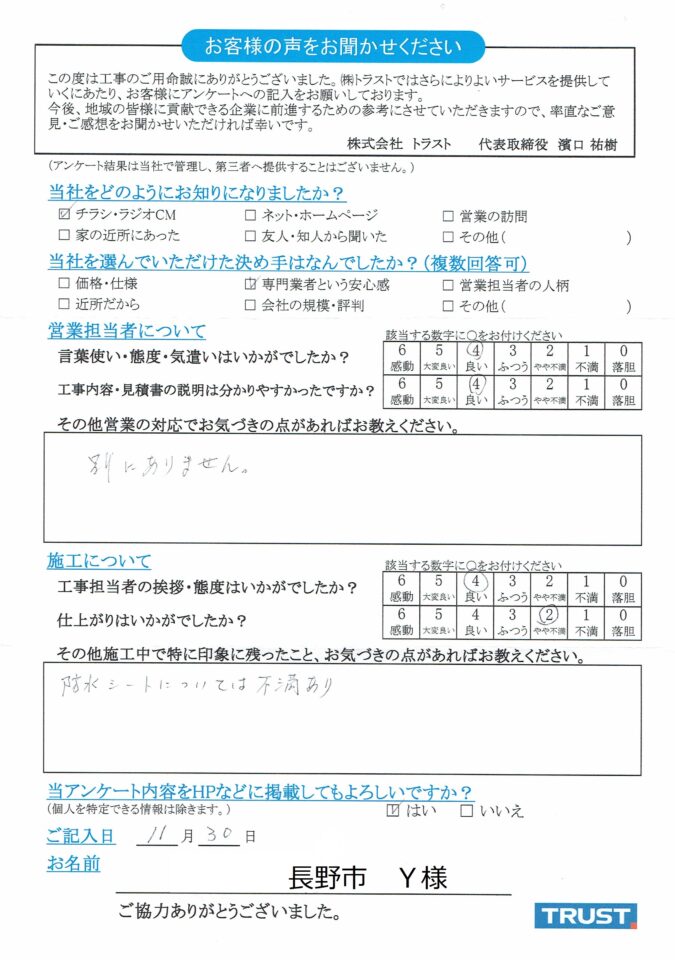 お客様の声をお聞かせください
この度は工事のご用命誠にありがとうございました。㈱トラストではさらによりよいサービスを提供して
いくにあたり、お客様にアンケートへの記入をお願いしております。
今後、地域の皆様に貢献できる企業に前進するための参考にさせていただきますので、率直なご意
見・ご感想をお聞かせいただければ幸いです。
株式会社 トラスト 代表取締役 濱口 祐樹
(アンケート結果は当社で管理し、第三者へ提供することはございません。)
当社をどのようにお知りになりましたか?
☑ チラシ・ラジオCM □ ネット・ホームページ □ 営業の訪問
□ 家の近所にあった □ 友人・知人から聞いた □ その他( )
当社を選んでいただけた決め手はなんでしたか?(複数回答可)
□ 価格・仕様 ☑ 専門業者という安心感 □ 営業担当者の人柄
□ 近所だから □ 会社の規模・評判 □ その他( )
営業担当者について
該当する数字に○をお付けください
言葉使い・態度・気遣いはいかがでしたか?
6 5 4 3 2 1 0
感動 大変良い 良い ふつう やや不満 不満 落胆
工事内容・見積書の説明は分かりやすかったですか?
6 5 4 3 2 1 0
感動 大変良い 良い ふつう やや不満 不満 落胆
その他営業の対応でお気づきの点があればお教えください。
別にありません。
施工について
該当する数字に○をお付けください
工事担当者の挨拶・態度はいかがでしたか?
6 5 4 3 2 1 0
感動 大変良い 良い ふつう やや不満 不満 落胆
仕上がりはいかがでしたか?
6 5 4 3 2 1 0
感動 大変良い 良い ふつう やや不満 不満 落胆
その他施工中で特に印象に残ったこと、お気づきの点があればお教えください。
防水シートについては不満あり
当アンケート内容をHPなどに掲載してもよろしいですか?
(個人を特定できる情報は除きます。) ☑ はい □ いいえ
ご記入日 11 月 30 日
お名前
長野市 Y様
ご協力ありがとうございました。
TRUST.